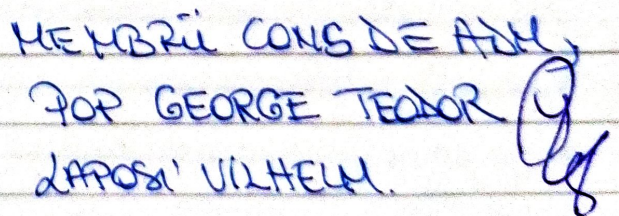 MEMBRII CONS DE ADM,
POP GEORGE TEODOR
LAPOSI VILHELM.